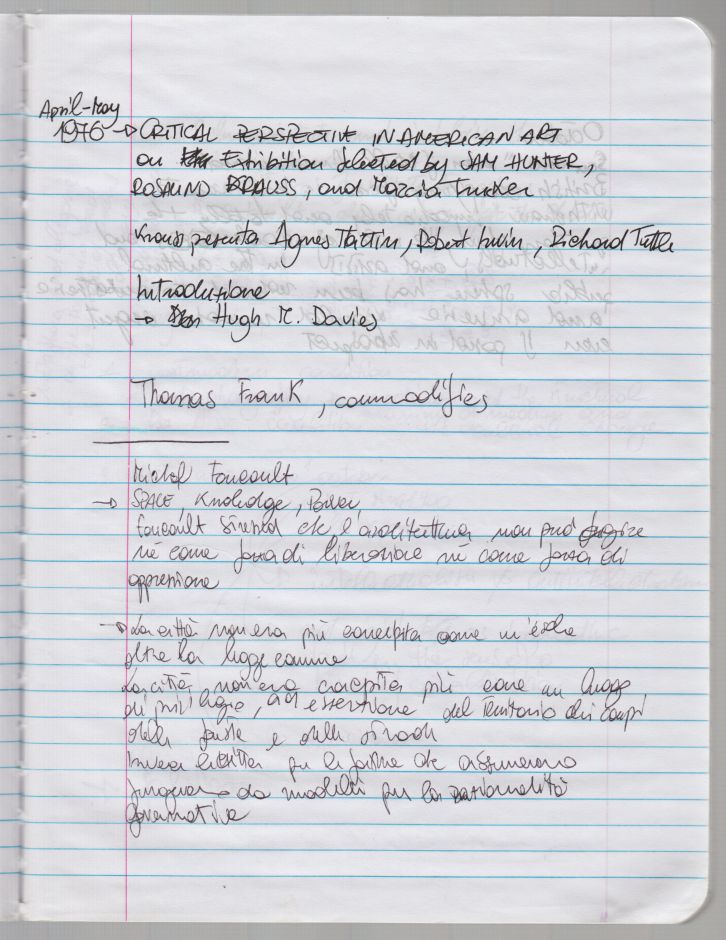 April-May
1976 → CRITICAL PERSPECTIVE IN AMERICAN ART
an Exhibition selected by SAM HUNTER,
ROSALIND KRAUSS, and Marcia Tucker
Krauss presenta Agnes Martin, Robert Irwin, Richard Tuttle
Introduzione
→ Hugh M. Davies
Thomas Frank, commodifies
Michel Foucault
→ SPACE, Knowledge, Power,
Foucault che l'architettura non può
nè come forza di liberazione nè come forza di
oppressione
→ La città non era più concepita come un'isola
oltre la legge comune
La città non era concepita più come un luogo
di privilegio, ad eccezione del territorio dei campi
delle foreste e delle strade
Invece le città per le forme che assumevano
da modelli per la razionalità
governativa